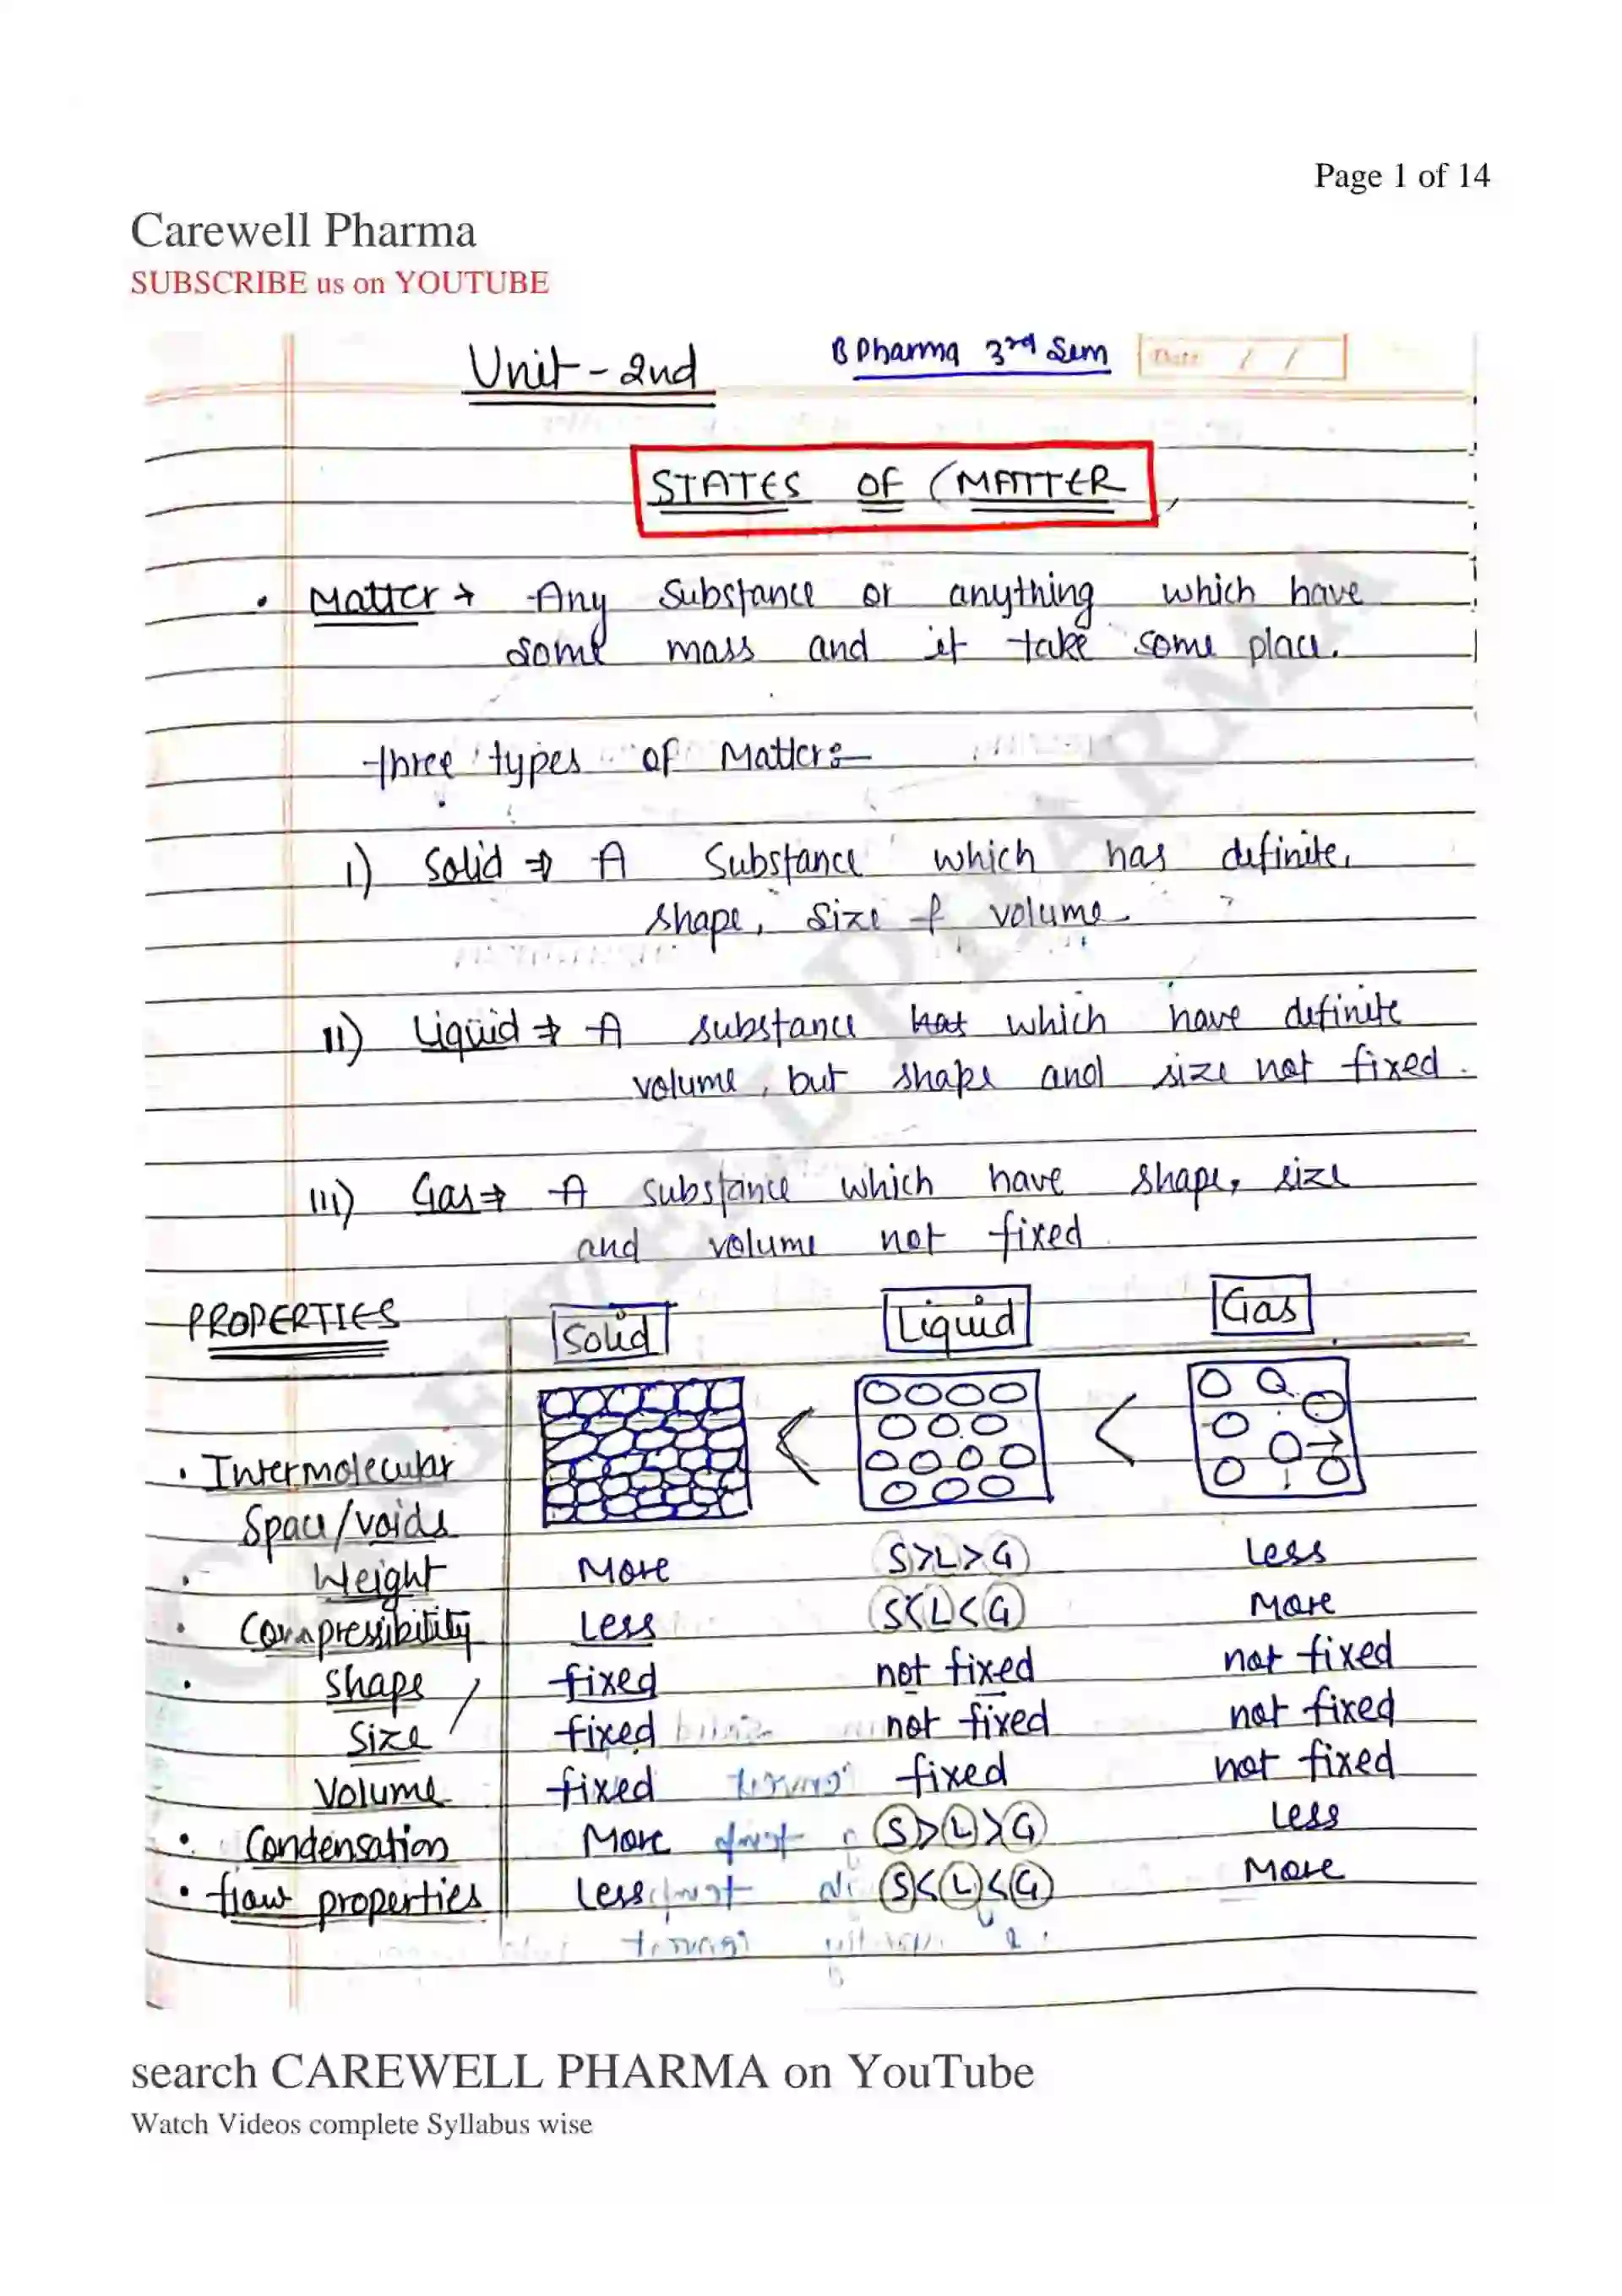 Page 1 of 14
Carewell Pharma
SUBSCRIBE us on YOUTUBE
Unit - 2nd
B Pharma 3rd Sem
Date / /
STATES OF MATTER
• Matter → Any Substance or anything which have
some mass and it take some place.
three types of Matter:-
I) Solid ⇒ A Substance which has definite,
shape, size & volume.
II) Liquid ⇒ A substance has which have definite
volume, but shape and size not fixed.
III) Gas ⇒ A substance which have shape, size
and volume not fixed
PROPERTIES Solid Liquid Gas
• Intermolecular < <
Space/voids
• Weight More S>L>G Less
• Compressibility Less S<L<G More
• Shape / fixed not fixed not fixed
Size fixed not fixed not fixed
Volume fixed fixed not fixed
• Condensation More S>L>G Less
• flow properties Less S<L<G More
CAREWELL PHARMA
search CAREWELL PHARMA on YouTube
Watch Videos complete Syllabus wise